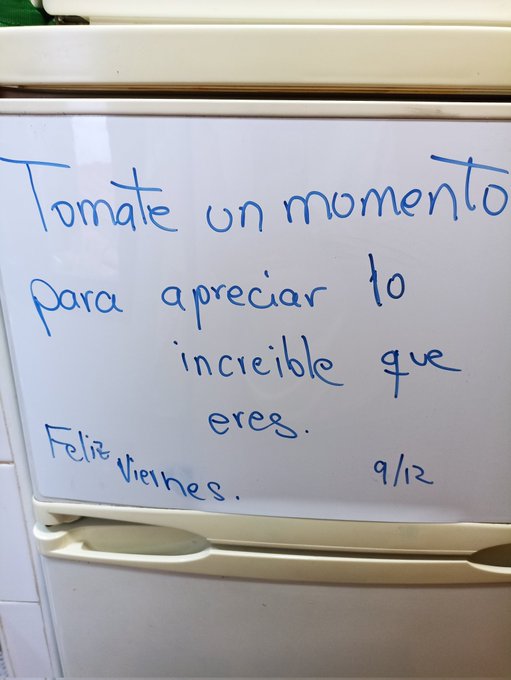 Tomate un momento
para apreciar lo
increible que
eres.
Feliz Viernes.
9/12